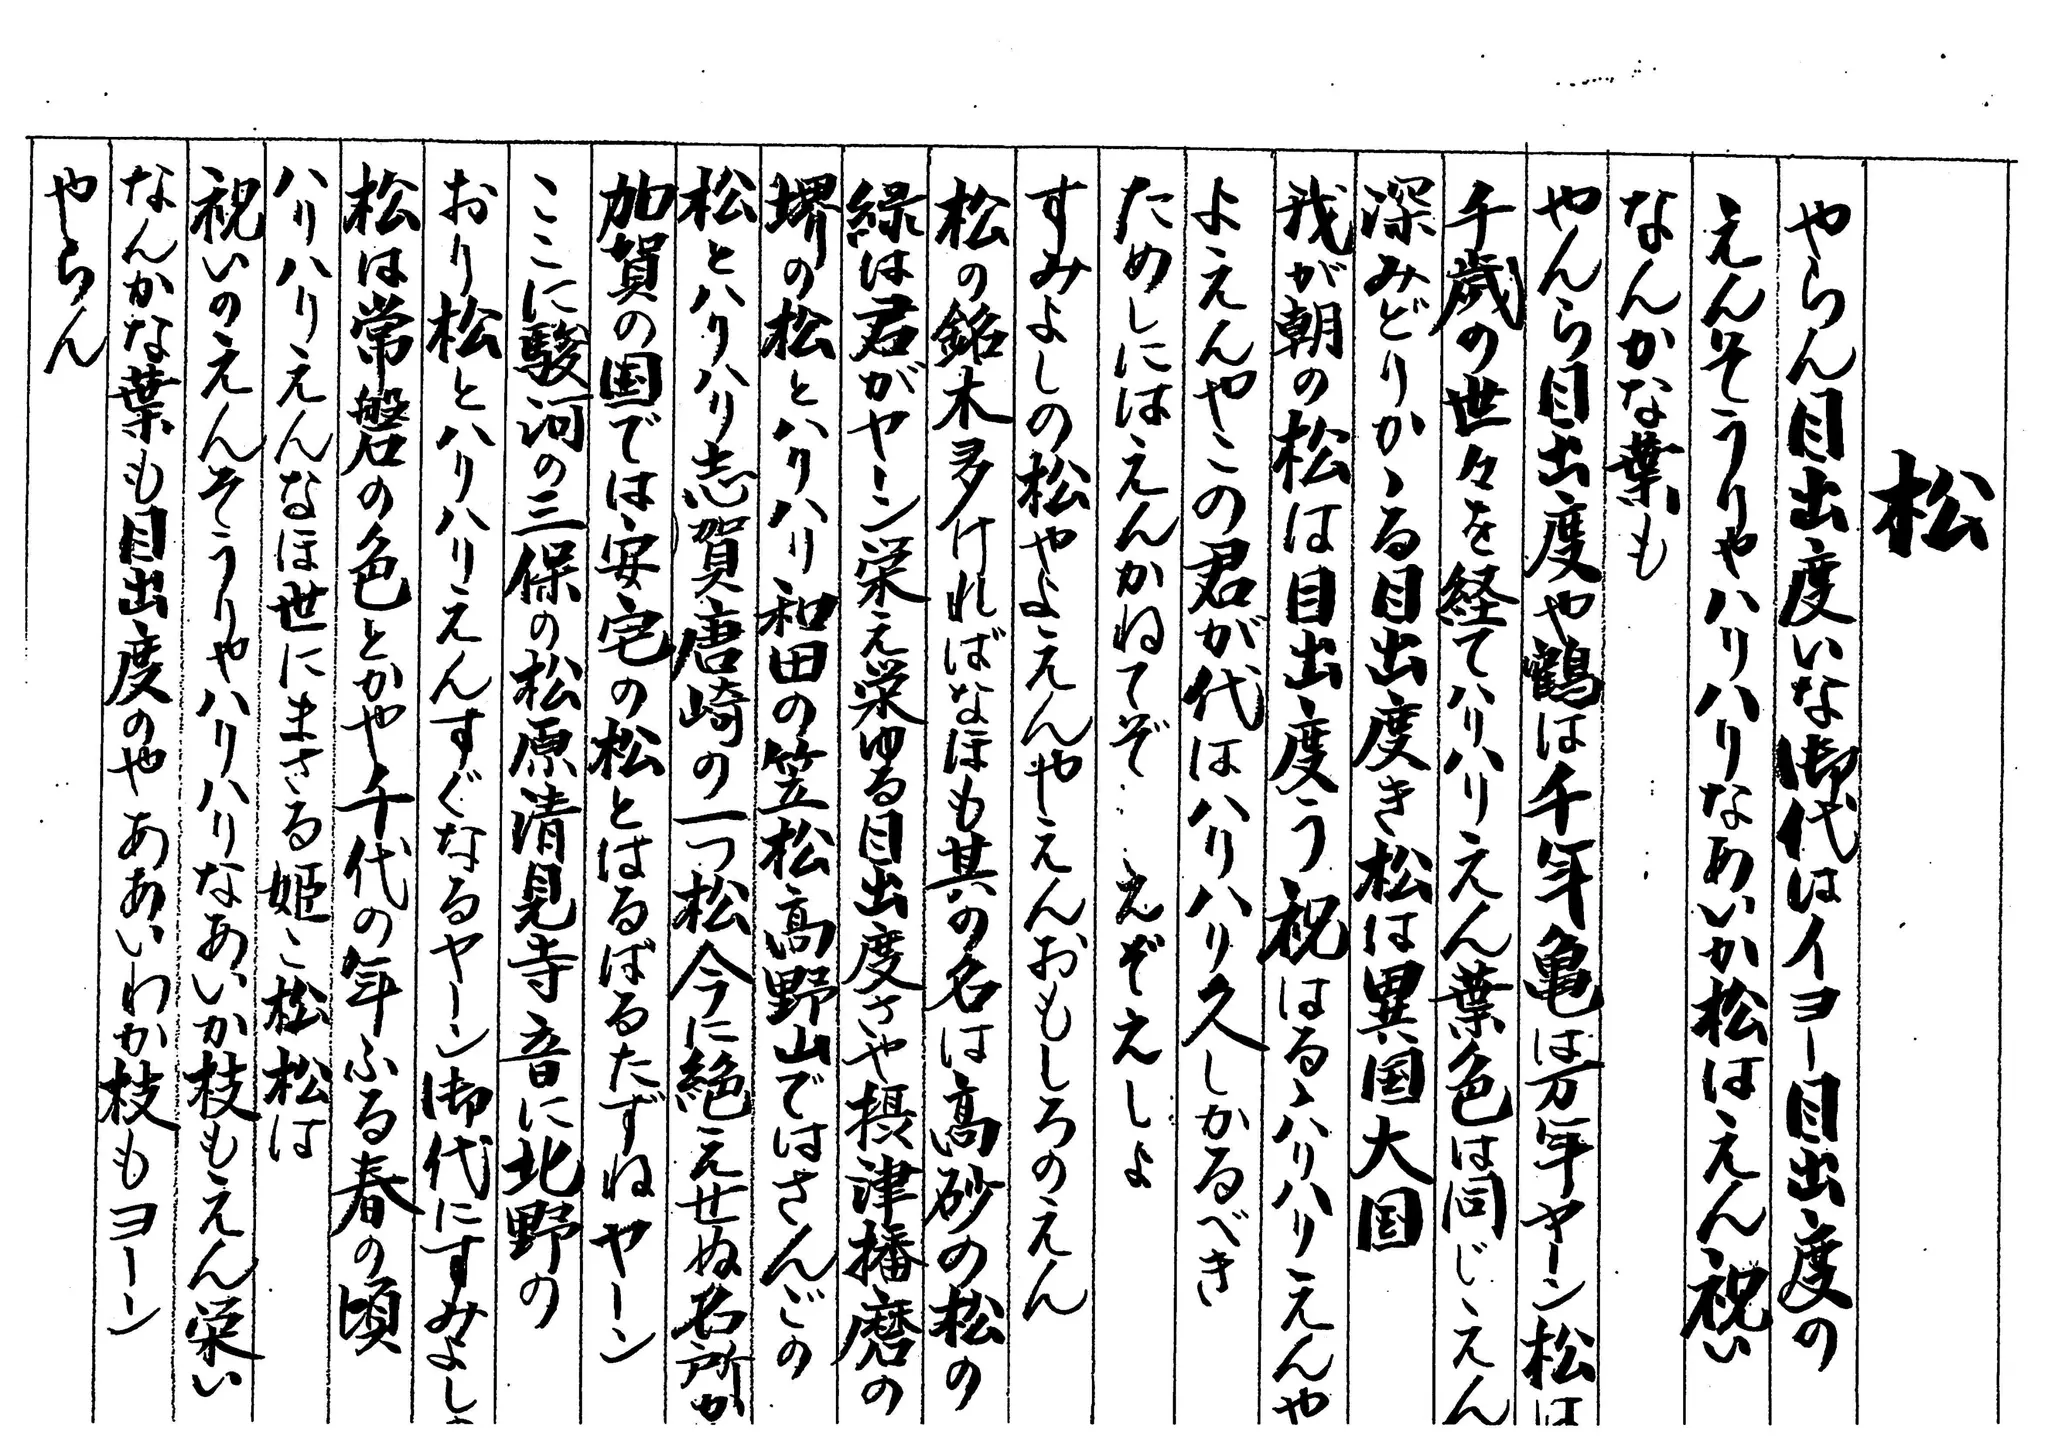 松
やらん目出度いな御代はイヨー目出度の
えんそうりやハリハリなあいか松はえん祝い
なんかな葉も
やんら目出度や鶴は千年亀は万年ヤーン松は
千歳の世々を経てハリハリえん葉色は同じゝえん
深みどりかゝる目出度き松は異国大国
我が朝の松は目出度う祝はるゝハリハリえんや
よえんやこの君が代はハリハリ久しかるべき
ためしにはえんかねてぞ‥えぞえしょ
すみよしの松やよえんやえんおもしろのえん
松の銘木多ければなほも其の名は高砂の松の
緑は君がヤーン栄え栄ゆる目出度さや摂津播磨の
堺の松とハリハリ和田の笠松高野山ではさんごの
松とハリハリ志賀唐崎の一つ松今に絶えせぬ名所か
加賀の国では安宅の松とはるばるたずねヤーン
ここに駿河の三保の松原清見寺音に北野の
おり松とハリハリえんすぐなるヤーン御代にすみよし
松は常磐の色とかや千代の年ふる春の頃
ハリハリえんなほ世にまさる姫こ松松は
祝いのえんそうりやハリハリなあいか枝もえん栄い
なんかな葉も目出度のやああいわか枝もヨーン
やらん